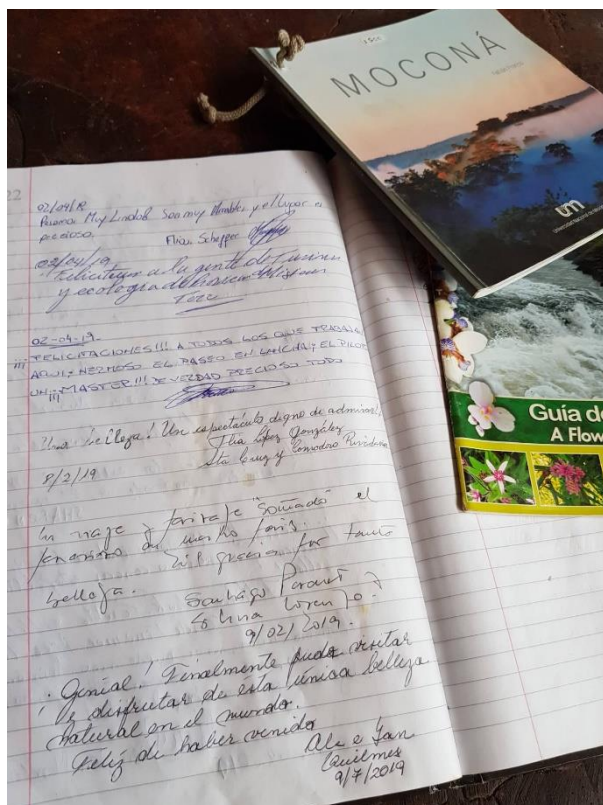 22
02/04/19
Paseamos Muy Lindo Son muy Amables y el lugar es
precioso.
02/04/19
Felicitamos a la gente de Turismo
y ecología de
02-04-19
¡¡¡ FELICITACIONES!!! A TODOS LOS QUE TRABAJAN
AQUI, HERMOSO EL PASEO EN LANCHA, EL PILOTO
UN MASTER!!! DE VERDAD PRECIOSO TODO
Una belleza! Un espectáculo digno de admirar!
López González
Sta Cruz y Comodoro Rivadavia
8/2/19
Un viaje y paisaje "soñado" el
nuestro país.
Mil gracias por tanta
belleza.
Santiago
Lorenzo.
9/02/2019.
¡Genial! Finalmente pude visitar
y disfrutar de ésta única belleza
natural en el mundo.
Feliz de haber venido
Ale e Ian
Quilmes
9/7/2019
MOCONÁ
um
Guía de
A Flow